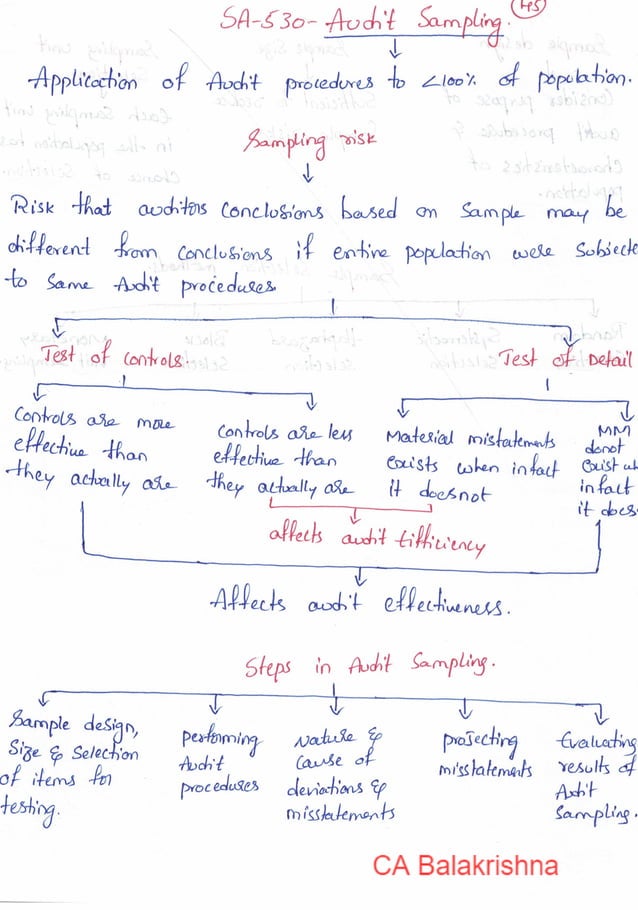 SA-530- Audit Sampling.
45
Application of Audit procedures to <100% of population.
Sampling risk
Risk that auditors conclusions based on sample may be
different from conclusions if entire population were subjecte
to same Audit procedures
Test of controls.
Test of Detail
Controls are more
effective than
they actually are
Controls are less
effective than
they actually are
Material misstatements
exists when infact
it doesnot
MM
donot
Exist wh
infact
it does
affects audit efficiency
Affects audit effectiveness.
Steps in Audit Sampling.
Sample design,
Size & Selection
of items for
testing.
performing
Audit
procedures
Nature &
cause of
deviations &
misstatements
projecting
misstatements
Evaluating
results of
Audit
Sampling.
CA Balakrishna